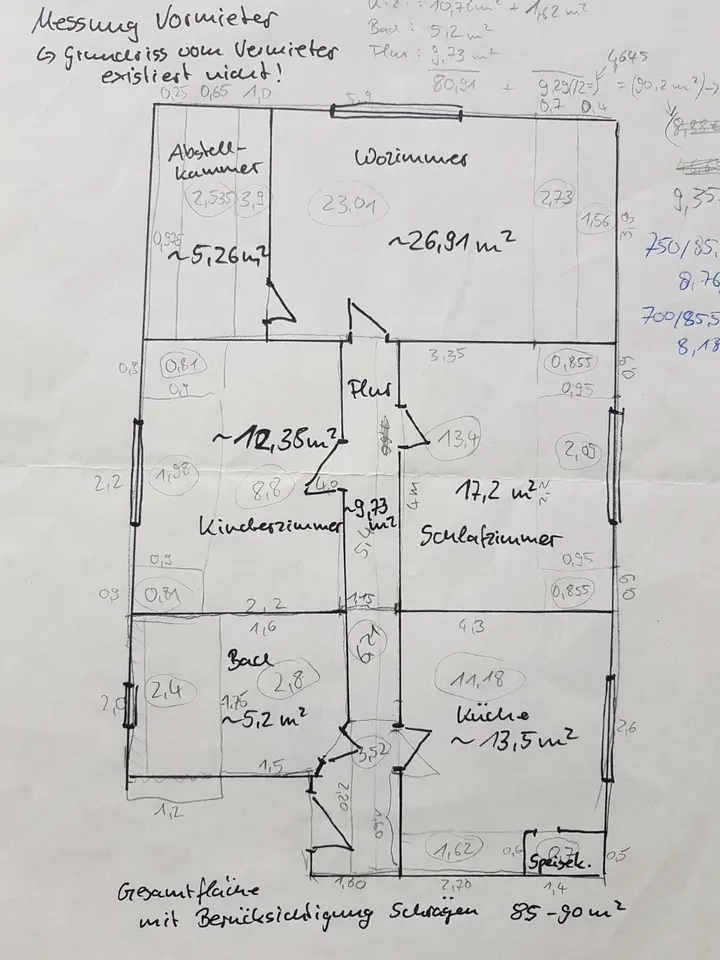 Messung Vormieter
↳ Grundriss vom Vermieter
existiert nicht!
K.Z.: 10,76m² + 1,62 m²
Bad: 5,2 m²
Flur: 9,73 m²
80,91 +
= (90,2 m²)
4,645
0,25 0,65 1,0
5,9
0,7 0,4
Abstell-
kammer
Wozimmer
2,535 3,9
23,01
2,73
1,56
3,9
0,975
~5,26m²
~26,91 m²
9,35
750/85,
8,76
700/85,5
8,18
0,9
0,81
0,9
Flur
3,35
0,855
0,95
0,9
~12,38m²
13,4
2,09
2,2
1,98
8,8
4,0
~9,73
m²
4m
17,2 m²
2,2
Kinderzimmer
Schlafzimmer
0,9
0,9
0,81
0,95
0,855
0,9
2,2
1,15
1,6
4,3
6,21
Bad
2,4
2,8
11,18
2,0
1,75
~5,2 m²
Küche
~13,5m²
2,6
3,52
1,5
1,2
2,20
1,60
1,62
0,6
Speisek.
0,5
1,60
2,70
1,4
Gesamtfläche
mit Berücksichtigung Schrägen 85-90m²